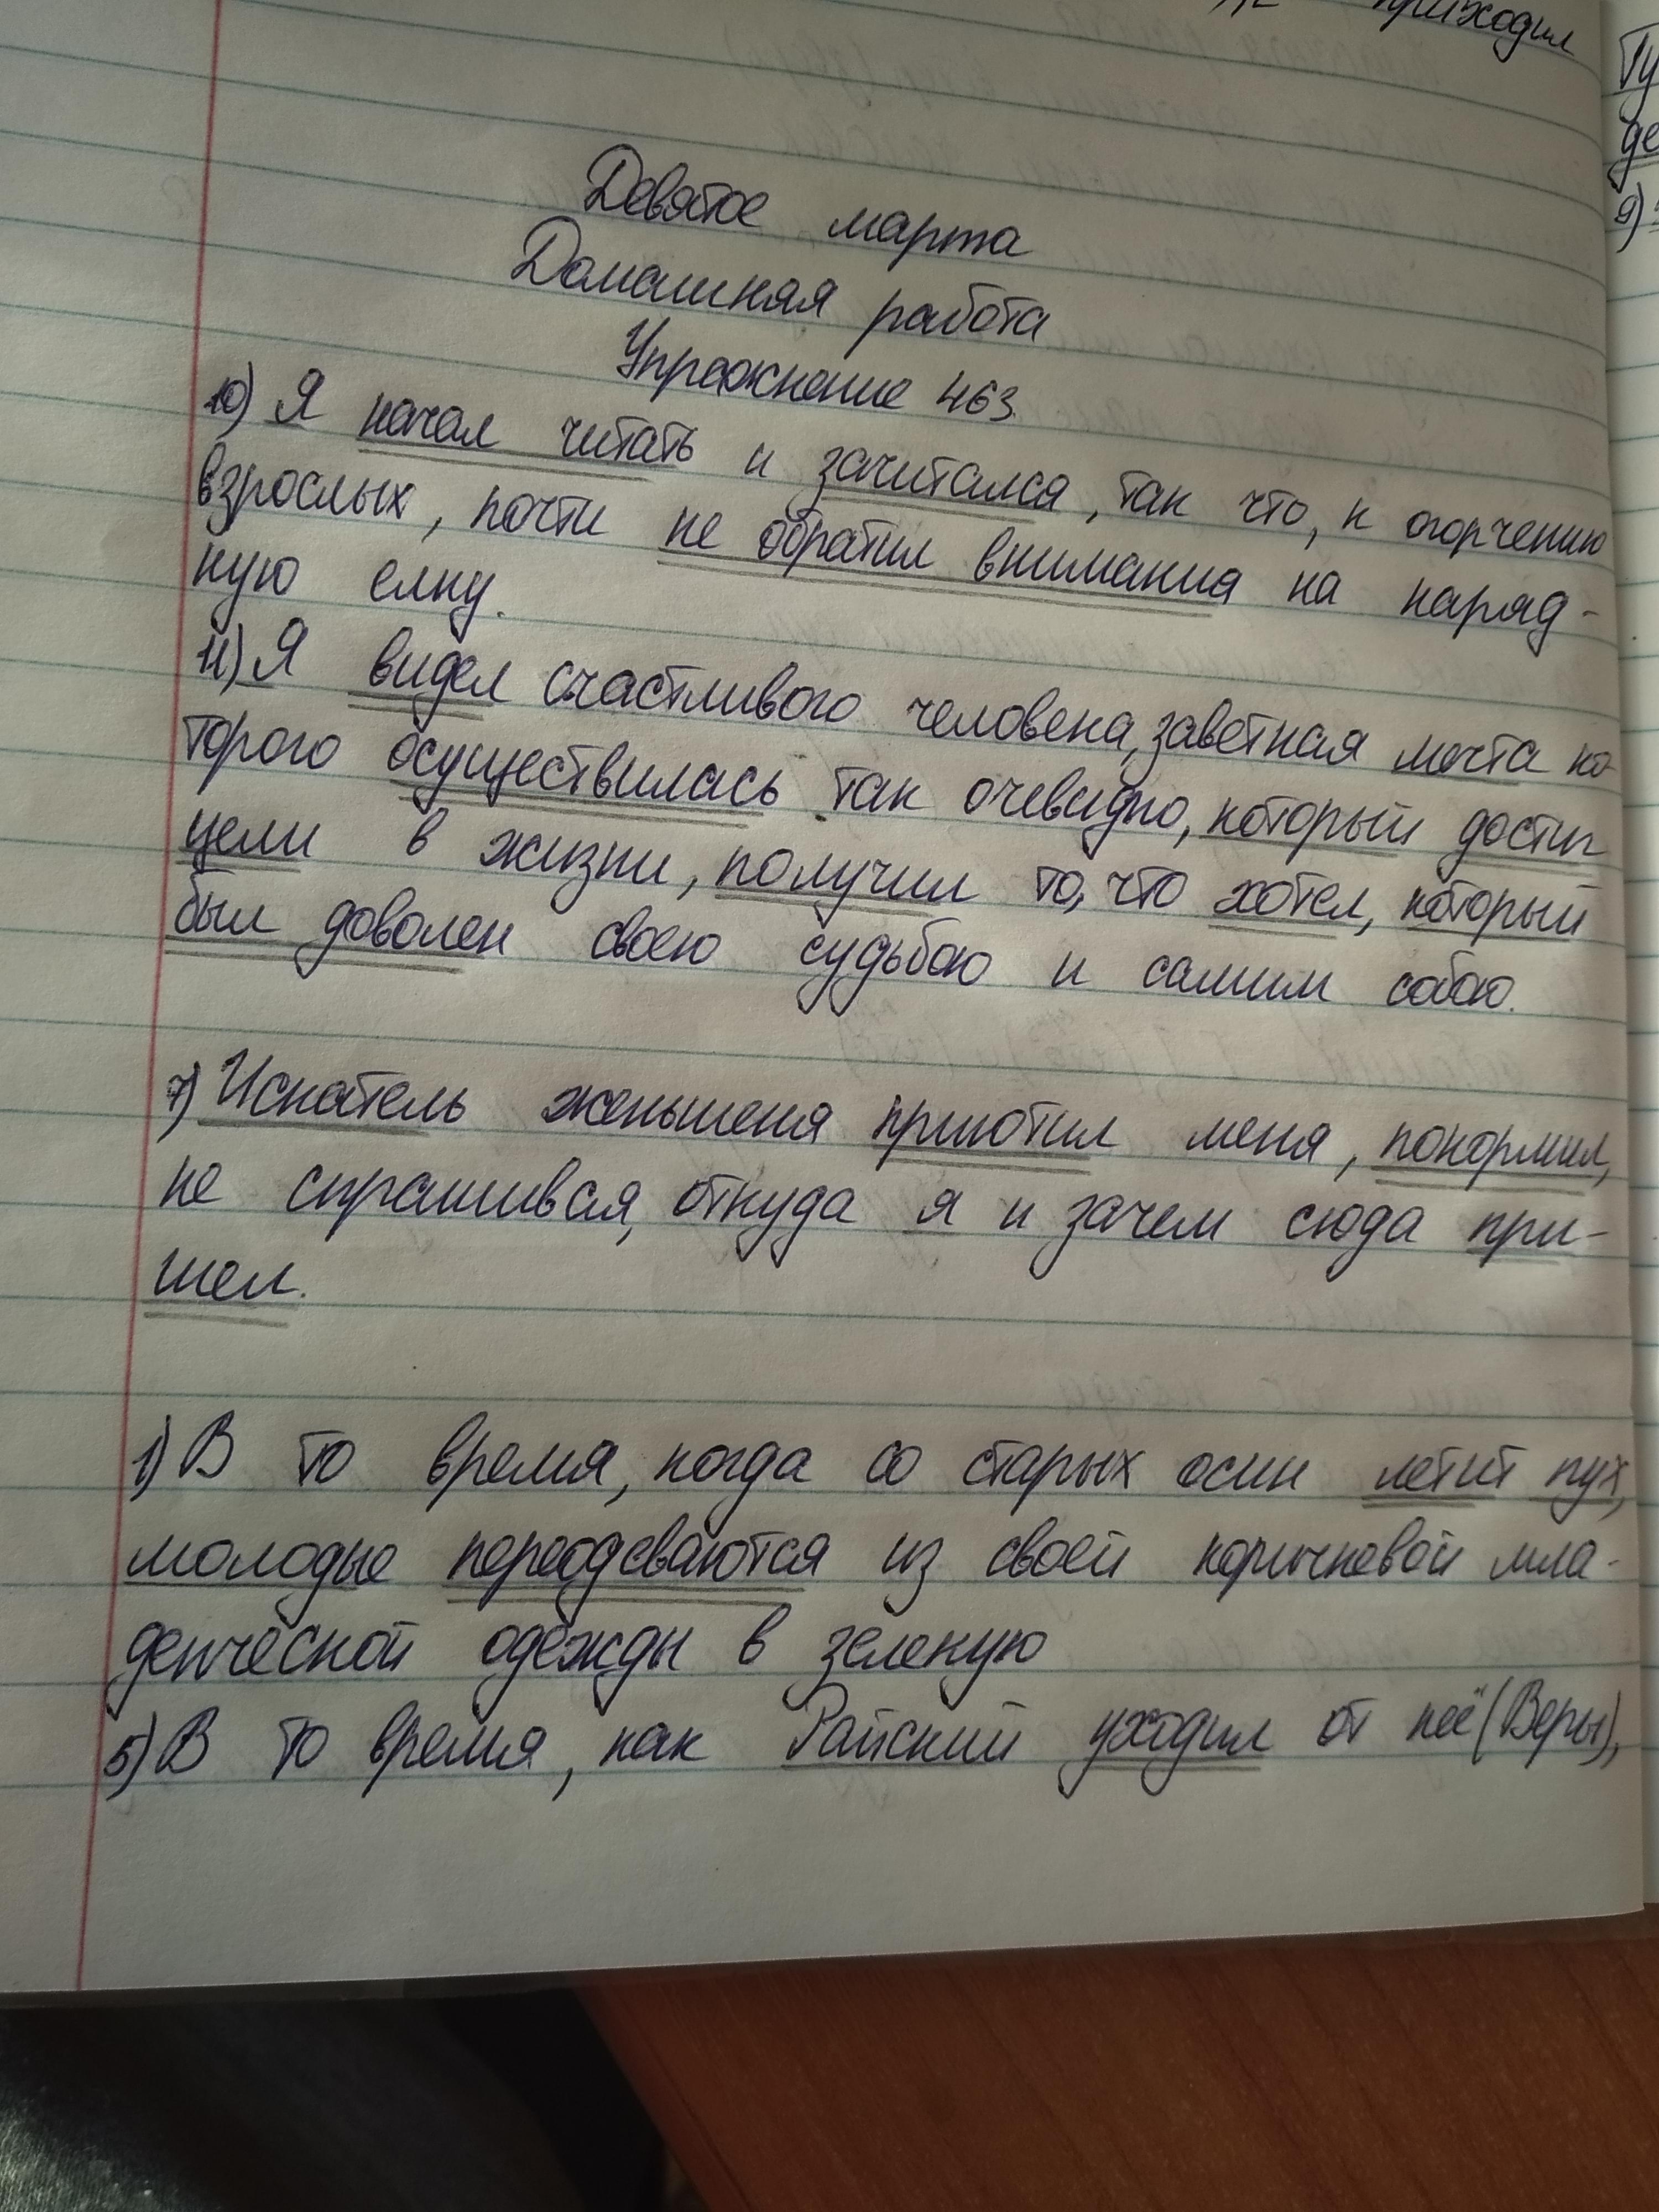 приходил
Девятое марта
Домашняя работа
Упражнение 463
10) Я начал читать и зачитался, так что, к огорчению
взрослых, почти не обратил внимания на наряд-
ную елку.
11) Я видел счастливого человека, заветная мечта ко-
торого осуществилась так очевидно, который достиг
цели в жизни, получил то, что хотел, который
был доволен своею судьбою и самим собою.
7) Искатель женьшеня приютил меня, покормил,
не спрашивая, откуда я и зачем сюда при-
шел.
1) В то время, когда со старых осин летит пух,
молодые переодеваются из своей коричневой мла-
денческой одежды в зеленую
5) В то время, как Райский уходил от неё (Веры),
9)